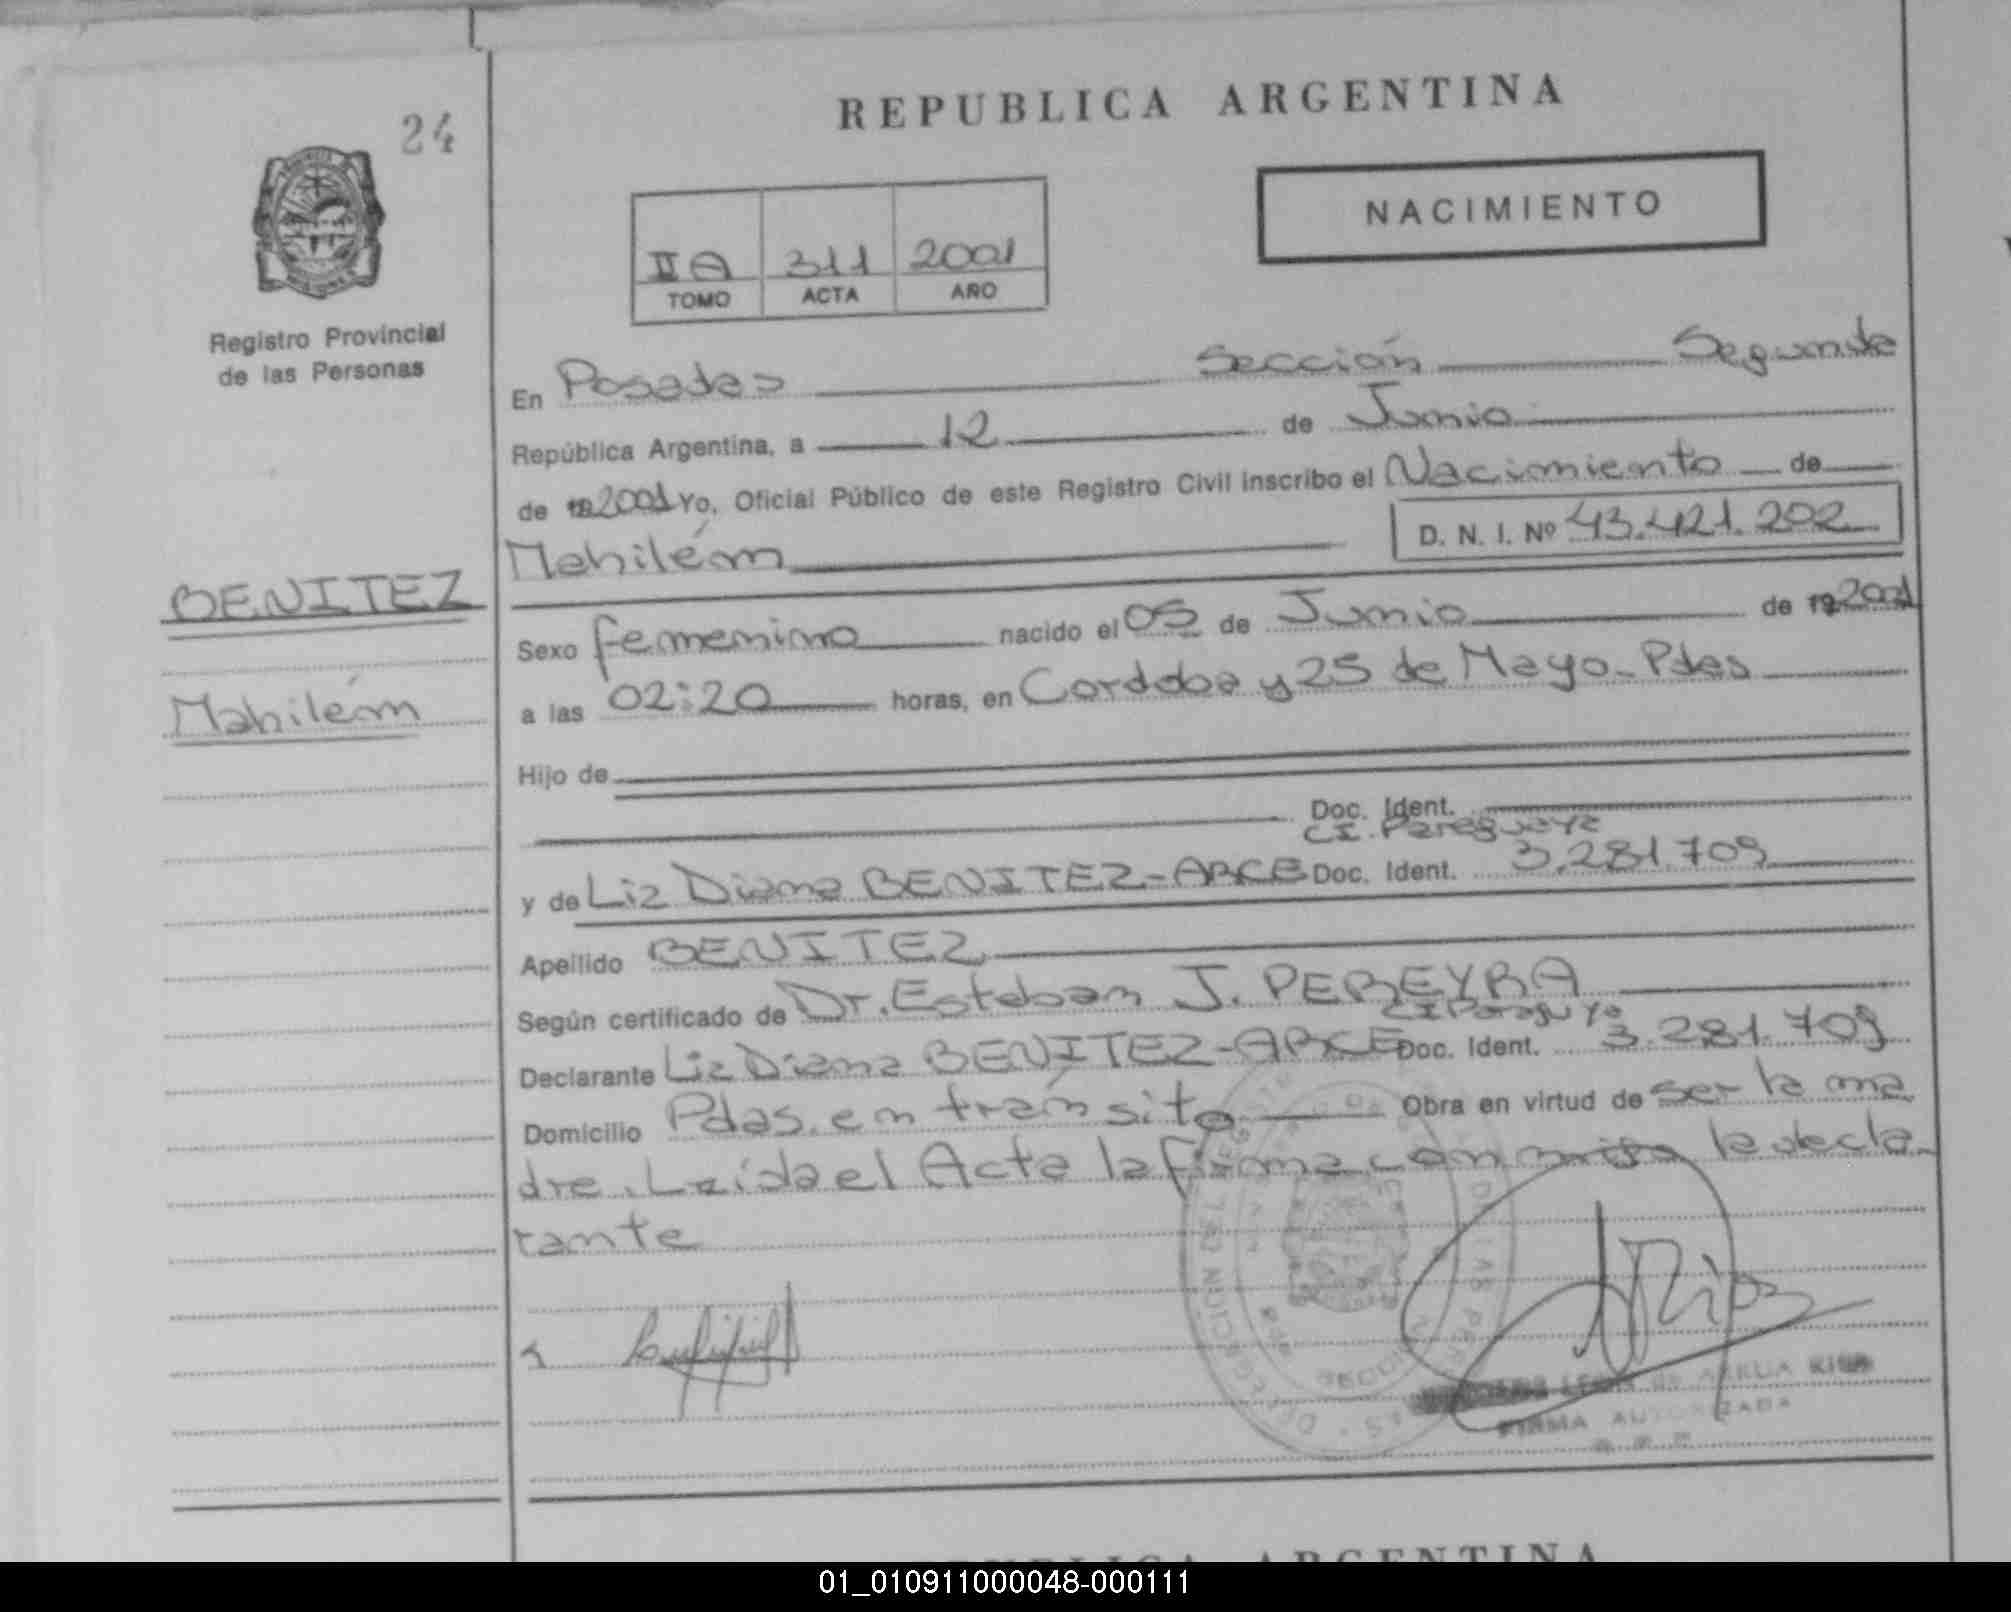 24
REPUBLICA ARGENTINA
NACIMIENTO
IIA 311 2001
TOMO ACTA AÑO
Registro Provincial
de las Personas
En Posadas Sección Segunda
República Argentina, a 12 de Junio
de 19 2001 Yo, Oficial Público de este Registro Civil inscribo el Nacimiento de
D. N. I. Nº 43.421.202
Mahilén
BENITEZ
Mahilén
Sexo femenino nacido el 05 de Junio de 19 2001
a las 02:20 horas, en Cordoba y 25 de Mayo - Pdas
Hijo de
Doc. Ident.
CI. Paraguaya
y de Liz Diana BENITEZ-ARCE Doc. Ident. 3.281.709
Apellido BENITEZ
Según certificado de Dr. Esteban J. PEREYRA
CI Paraguya
Declarante Liz Diana BENITEZ-ARCE Doc. Ident. 3.281.709
Domicilio Pdas. en tránsito Obra en virtud de ser la ma
dre. Leída el Acta la firma con la decla-
rante
Rios
FIRMA AUTORIZADA
REPUBLICA ARGENTINA
01_010911000048-000111